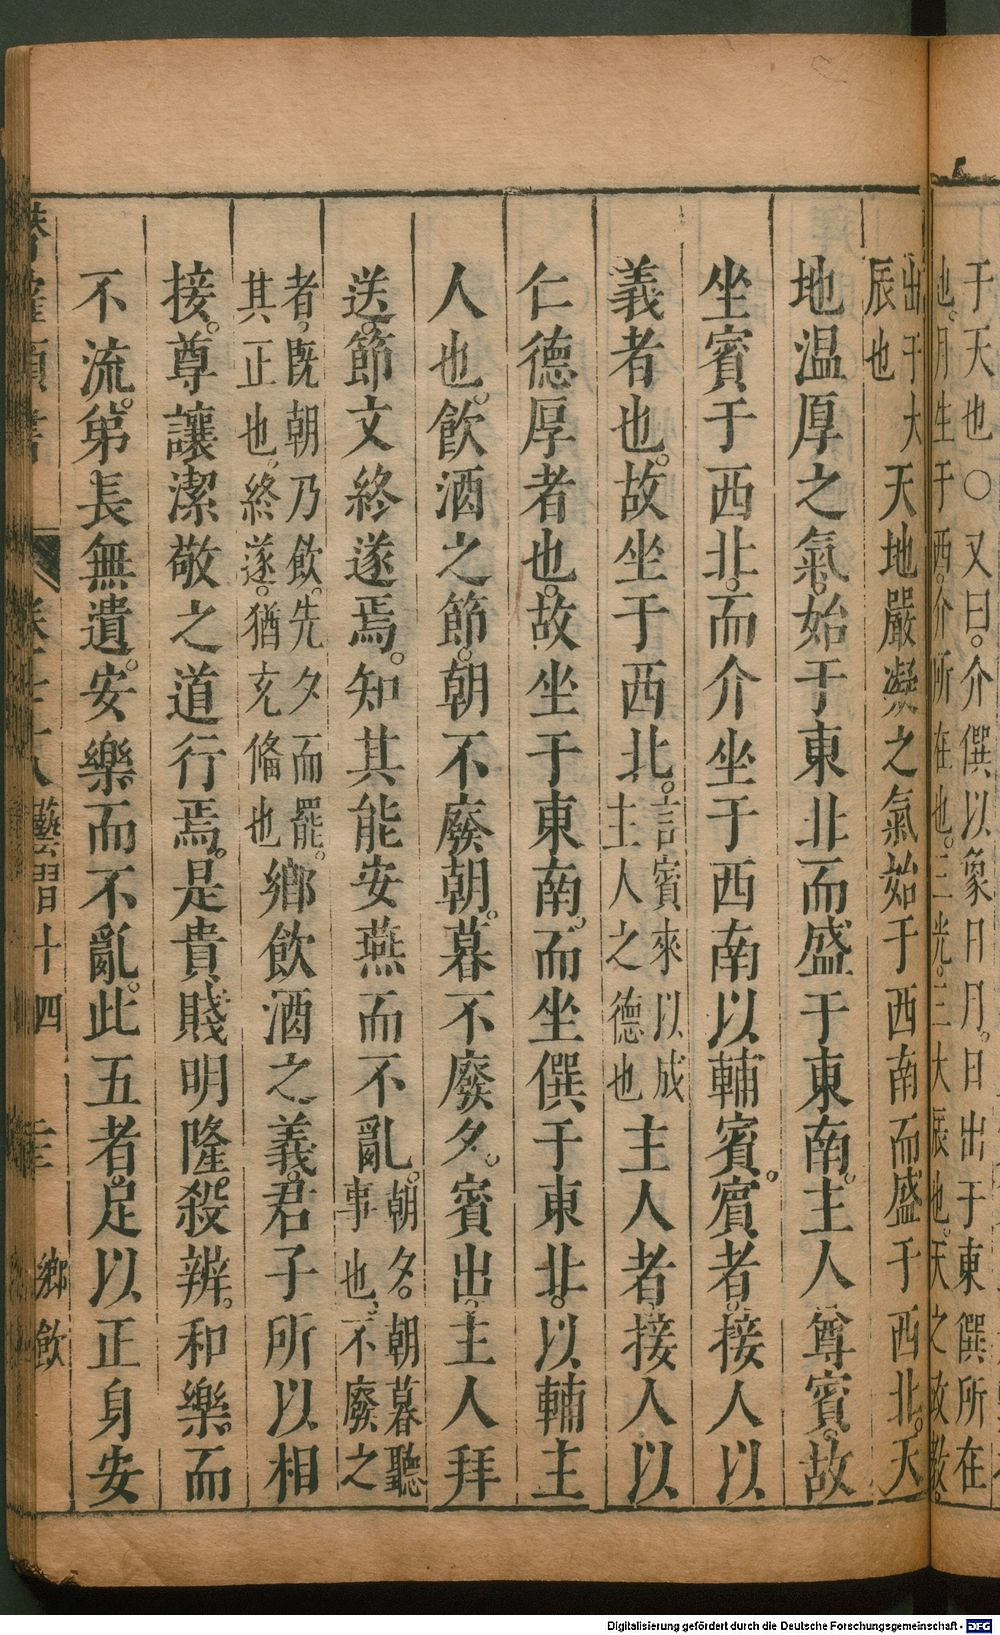 于天也○又曰介僎以象日月日出于東僎所在
也月生于西介所在也三光三大辰也天之政教
出于大
辰也
天地嚴凝之氣始于西南而盛于西北。天
地温厚之氣。始于東北而盛于東南。主人尊賓。故
坐賓于西北。而介坐于西南以輔賓。賓者。接人以
義者也。故坐于西北。
言賓來以成
主人之德也
主人者。接人以
仁德厚者也。故坐于東南。而坐僎于東北。以輔主
人也。飲酒之節。朝不廢朝。暮不廢夕。賓出。主人拜
送。節文終遂焉。知其能安燕而不亂。
朝夕。朝暮聽
事也。不廢之
者。旣朝乃飲。先夕而罷。
其正也。終遂。猶充俻也
鄉飲酒之義。君子所以相
接。尊讓潔敬之道行焉。是貴賤明。隆殺辨。和樂而
不流。弟長無遺。安樂而不亂。此五者。足以正身安
卷
藝習十四
鄉飲
Digitalisierung gefördert durch die Deutsche Forschungsgemeinschaft - DFG